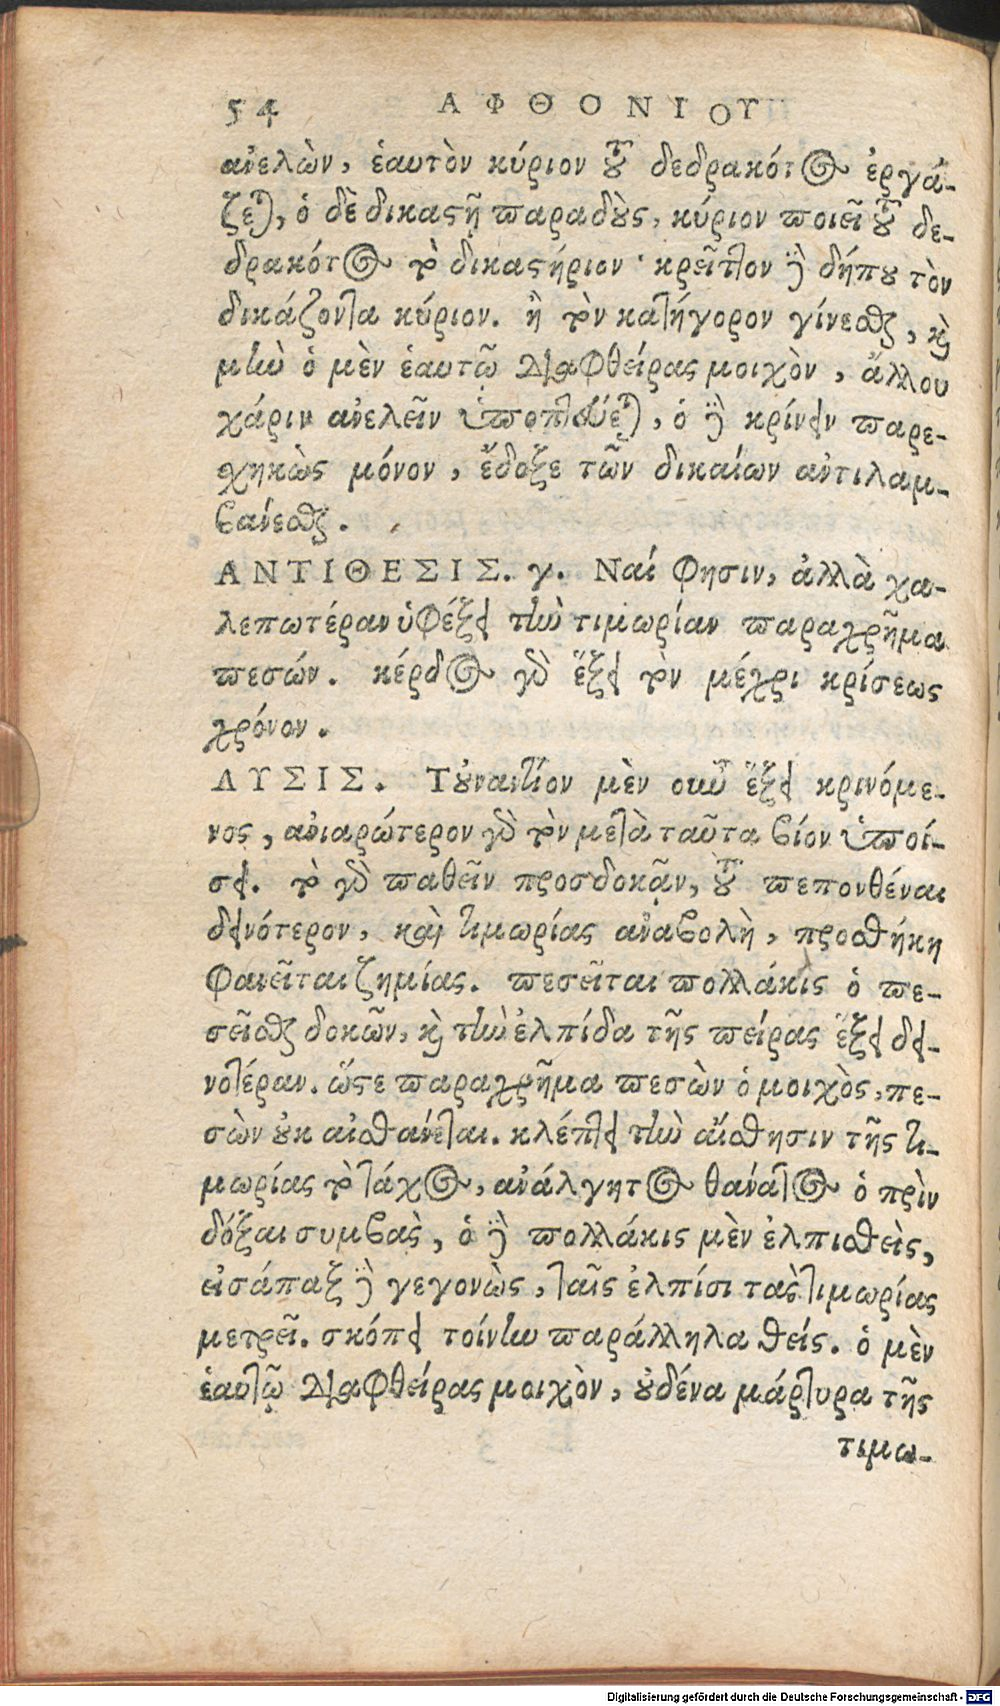 54 ΑΦΘΟΝΙΟΥ
ανελὼν, ἑαυτὸν κύριον τοῦ δεδρακότος ἐργά-
ζεται, ὁ δὲ δικαστῇ παραδοὺς, κύριον ποιεῖ τοῦ δε-
δρακότος τὸ δικαστήριον· κρεῖττον δὲ δήπου τὸν
δικάζοντα κύριον. ἢ τὸν κατήγορον γίνεσθαι, καὶ
μὴν ὁ μὲν ἑαυτῷ διαφθείρας μοιχὸν, ἄλλου
χάριν ανελεῖν ὑποπτεύεται, ὁ δὲ κρίνειν παρε-
σχηκὼς μόνον, ἔδοξε τῶν δικαίων αντιλαμ-
βανεσθαι.
ΑΝΤΙΘΕΣΙΣ. γ. Ναί φησιν, ἀλλὰ χα-
λεπωτέραν ὑφέξει τὴν τιμωρίαν παραχρῆμα
πεσών. κέρδος γὰρ ἕξει τὸν μέχρι κρίσεως
χρόνον.
ΛΥΣΙΣ. Τοὐναντίον μὲν οὖν ἕξει κρινόμε-
νος, ανιαρώτερον γὰρ τὸν μετὰ ταῦτα βίον ὑποί-
σει. τὸ γὰρ παθεῖν προσδοκᾷν, τοῦ πεπονθέναι
δεινότερον, καὶ τιμωρίας αναβολὴ, προσθήκη
φανεῖται ζημίας. πεσεῖται πολλάκις ὁ πε-
σεῖσθαι δοκῶν, καὶ τὴν ἐλπίδα τῆς πείρας ἕξει δει-
νοτέραν. ὥστε παραχρῆμα πεσὼν ὁ μοιχὸς, πε-
σὼν οὐκ αισθάνεται. κλέπτει τὴν αἴσθησιν τῆς τι-
μωρίας τὸ τάχος, ανάλγητος θάνατος ὁ πρὶν
δόξαι συμβὰς, ὁ δὲ πολλάκις μὲν ἐλπισθεὶς,
εισάπαξ δὲ γεγονὼς, ταῖς ἐλπίσι τὰς τιμωρίας
μετρεῖ. σκόπει τοίνυν παράλληλα θείς. ὁ μὲν
ἑαυτῷ διαφθείρας μοιχὸν, οὐδένα μάρτυρα τῆς
τιμω-
Digitalisierung gefördert durch die Deutsche Forschungsgemeinschaft - DFG